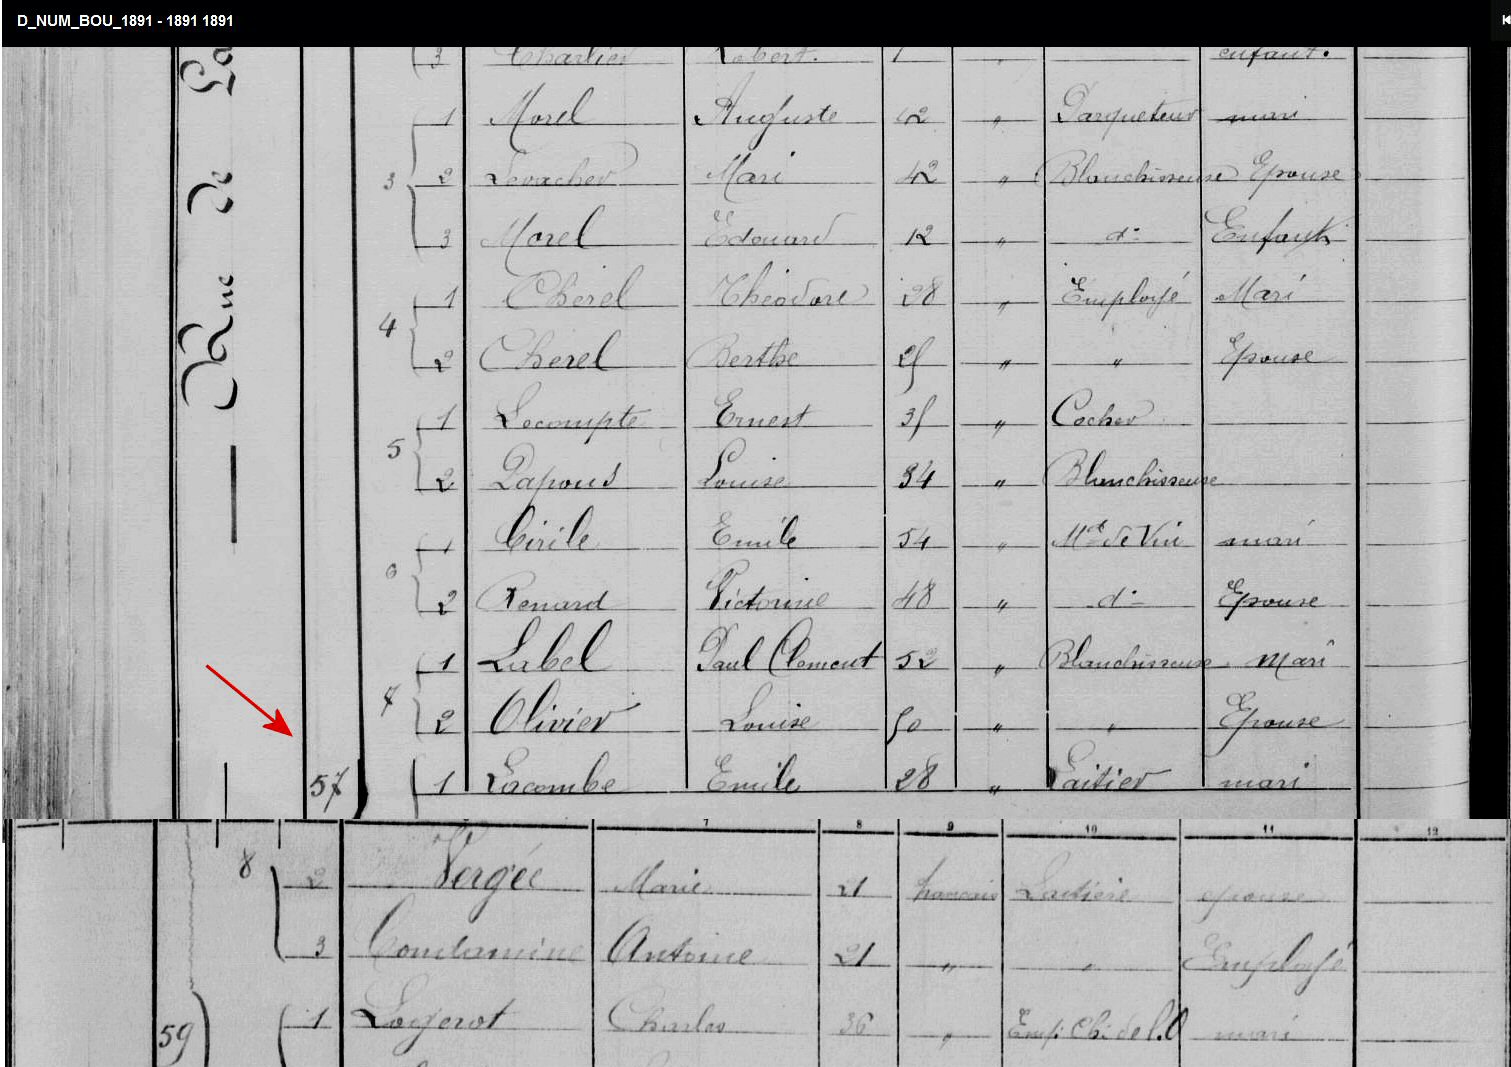 D_NUM_BOU_1891 - 1891 1891
3 Chartier Robert. 1 " enfant.
1 Morel Auguste 42 " Parqueteur mari
3 2 Levacher Mari 42 " Blanchisseuse Epouse
3 Morel Edouard 12 " d° Enfant
1 Cherel Théodore 28 " Employé Mari
4
2 Cherel Berthe 25 " " Epouse
1 Lecompte Ernest 35 " Cocher
5
2 Louise 34 " Blanchisseuse
1 Cirile Emile 54 " Md de Vin mari
6
2 Renard Victorine 48 " d° Epouse
1 Label Paul Clement 52 " Blanchisseuse Mari
7
2 Olivier Louise 50 " " Epouse
57 1 Lacombe Emile 28 " Laitier mari
7 8 9 10 11 12
8 2 Vergée Marie 21 français Laitière epouse
3 Condamine Antoine 21 " " Employé
59 1 Logerot Charles 36 " Emp: Ch. de l.O mari
Rue de